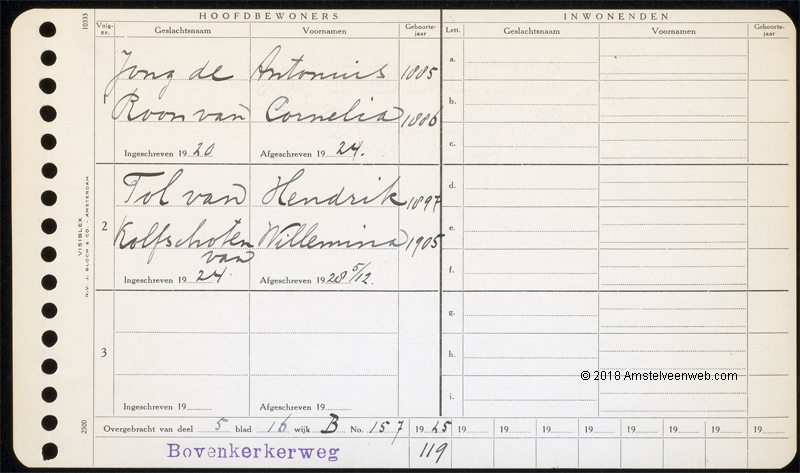 HOOFDBEWONERS INWONENDEN
10333 Volg-nr. Geslachtsnaam Voornamen Geboorte-jaar Lett. Geslachtsnaam Voornamen Geboorte-jaar
1 Jong de Antonius 1885 a.
Roon van Cornelia 1886 b.
Ingeschreven 19 20 Afgeschreven 19 24. c.
Tol van Hendrik 1897 d.
2 Kolfschoten van Willemina 1905 e.
Ingeschreven 19 24. Afgeschreven 19 28 5/12. f.
g.
3 h.
© 2018 Amstelveenweb.com
Ingeschreven 19 Afgeschreven 19 i.
VISIBLEX
N.V. J. BLOCH & CO. - AMSTERDAM
2500
Overgebracht van deel 5 blad 16 wijk B No. 157 1925 19 19 19 19 19 19 19 19
Bovenkerkerweg 119